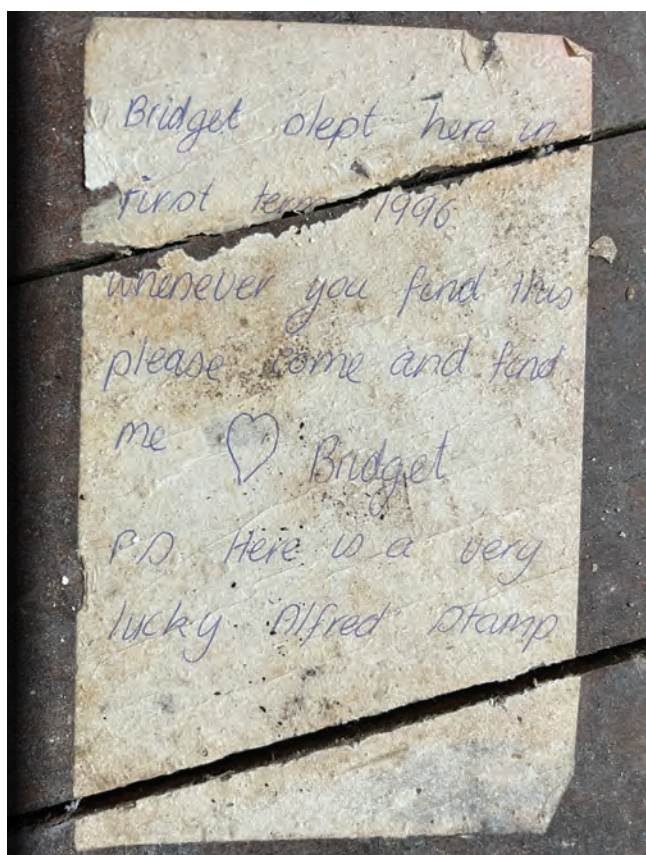 Bridget slept here in
first term 1996
whenever you find this
please come and find
me ♡ Bridget
PS Here is a very
lucky Alfred stamp